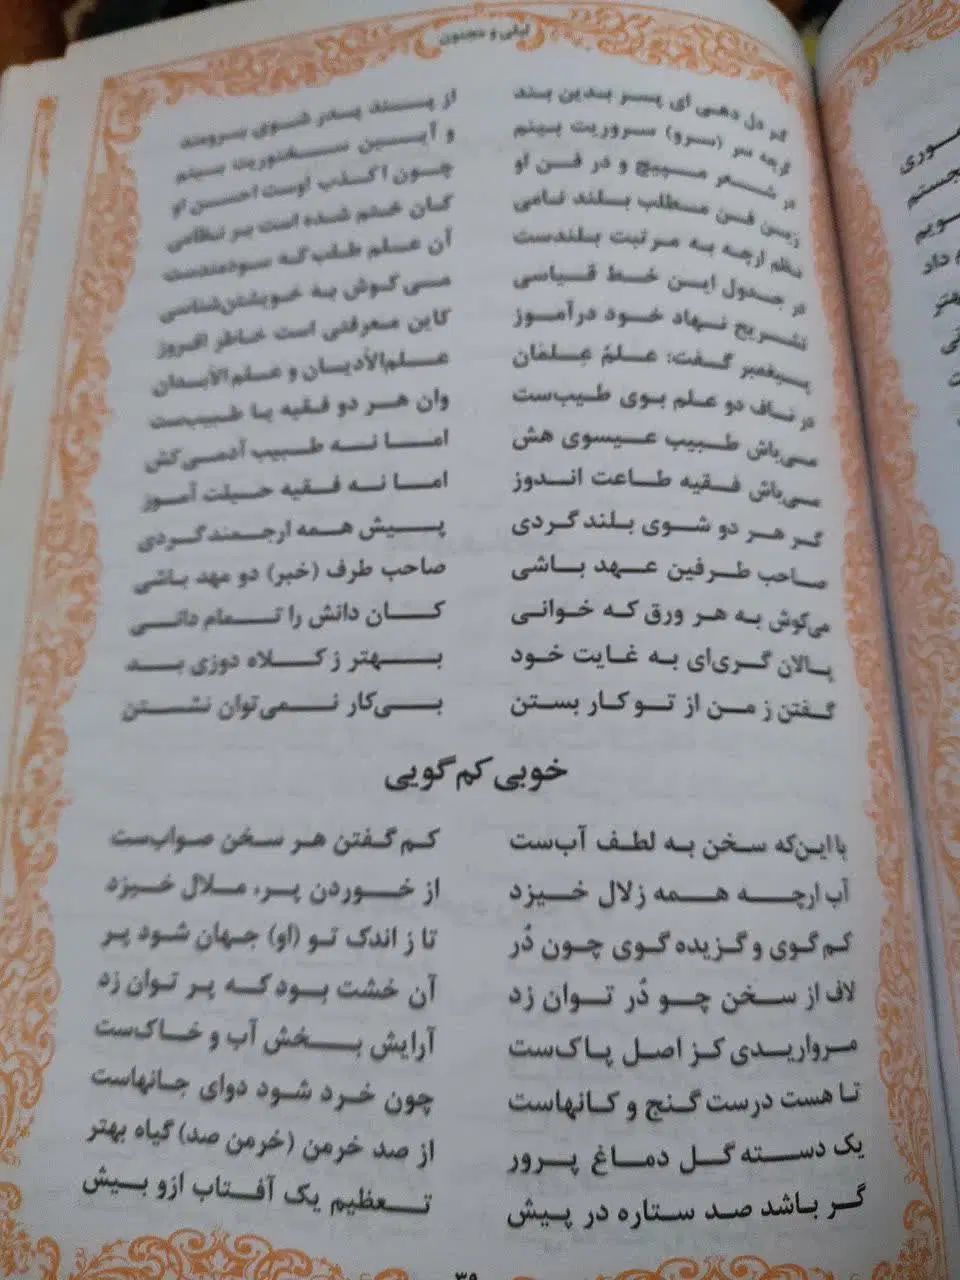 لیلی و مجنون
گر دل دهی ای پسر بدین پند از پند پدر شوی برومند
گرچه سر (سرو) سروریت بینم و آیین سخنوریت بینم
در شعر مپیچ و در فن او چون اکذب اوست احسن او
زین فن مطلب بلند نامی کان ختم شده است بر نظامی
نظم ارچه به مرتبت بلندست آن علم طلب که سودمندست
در جدول این خط قیاسی می‌کوش به خویشتن‌شناسی
تشریح نهاد خود درآموز کاین معرفتی است خاطر افروز
پیغمبر گفت: علمُ عِلمٰان علم‌الأدیان و علم‌الأبدان
در ناف دو علم بوی طیب‌ست وان هر دو فقیه یا طبیب‌ست
می‌باش طبیب عیسوی هش اما نه طبیب آدمی‌کش
می‌باش فقیه طاعت اندوز اما نه فقیه حیلت آموز
گر هر دو شوی بلند گردی پیش همه ارجمند گردی
صاحب طرفین عهد باشی صاحب طرف (خبر) دو مهد باشی
می‌کوش به هر ورق که خوانی کان دانش را تمام دانی
پالان گری‌ای به غایت خود بهتر ز کلاه دوزی بد
گفتن ز من از تو کار بستن بی‌کار نمی‌توان نشستن
خوبی کم‌گویی
با این‌که سخن به لطف آب‌ست کم گفتن هر سخن صواب‌ست
آب ارچه همه زلال خیزد از خوردن پر، ملال خیزد
کم گوی و گزیده گوی چون دُر تا ز اندک تو (او) جهان شود پر
لاف از سخن چو دُر توان زد آن خشت بود که پر توان زد
مرواریدی کز اصل پاک‌ست آرایش بخش آب و خاک‌ست
تا هست درست گنج و کانهاست چون خرد شود دوای جانهاست
یک دسته گل دماغ پرور از صد خرمن (خرمن صد) گیاه بهتر
گر باشد صد ستاره در پیش تعظیم یک آفتاب ازو بیش
۳۹